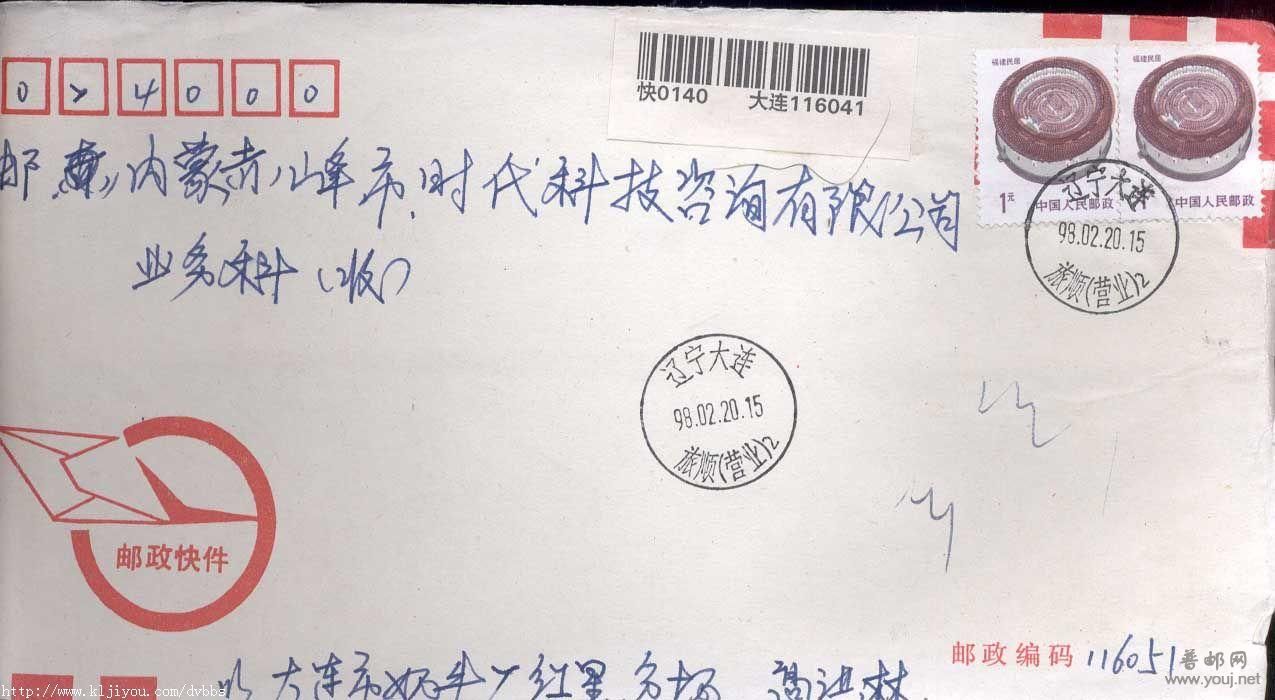 0 2 4 0 0 0
快0140 大连116041
福建民居 福建民居
1元 中国人民邮政 中国人民邮政
邮 内蒙赤峰市,时代科技咨询有限公司
业务科(收)
辽宁大连
98.02.20.15
旅顺(营业)2
辽宁大连
98.02.20.15
旅顺(营业)2
邮政快件
邮政编码 116051
大连市奶牛 红星分场
普邮网
www.youj.net
http://www.kljiyou.com/dvbbs